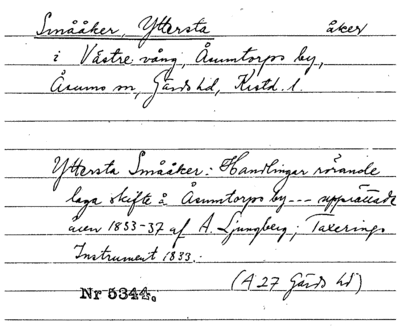 Småäker, Yttersta åker
i Västre vång, Åsumtorps by,
Åsums sn, Gärds hd, Kristd. l.
Yttersta Småäker: Handlingar rörande
laga skifte å Åsumtorps by --- upprättade
åren 1833-37 af A. Ljungberg; Taxerings
Instrument 1833.
(A 27 Gärds hd)
Nr 5344.